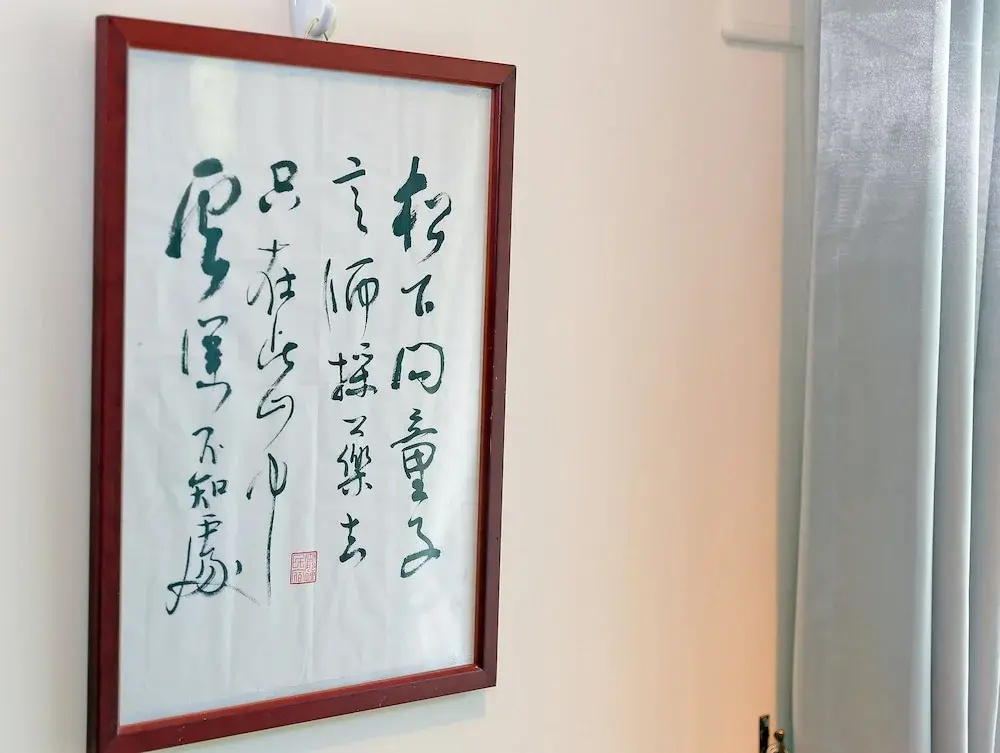 松下问童子
言師採藥去
只在此山中
雲深不知處